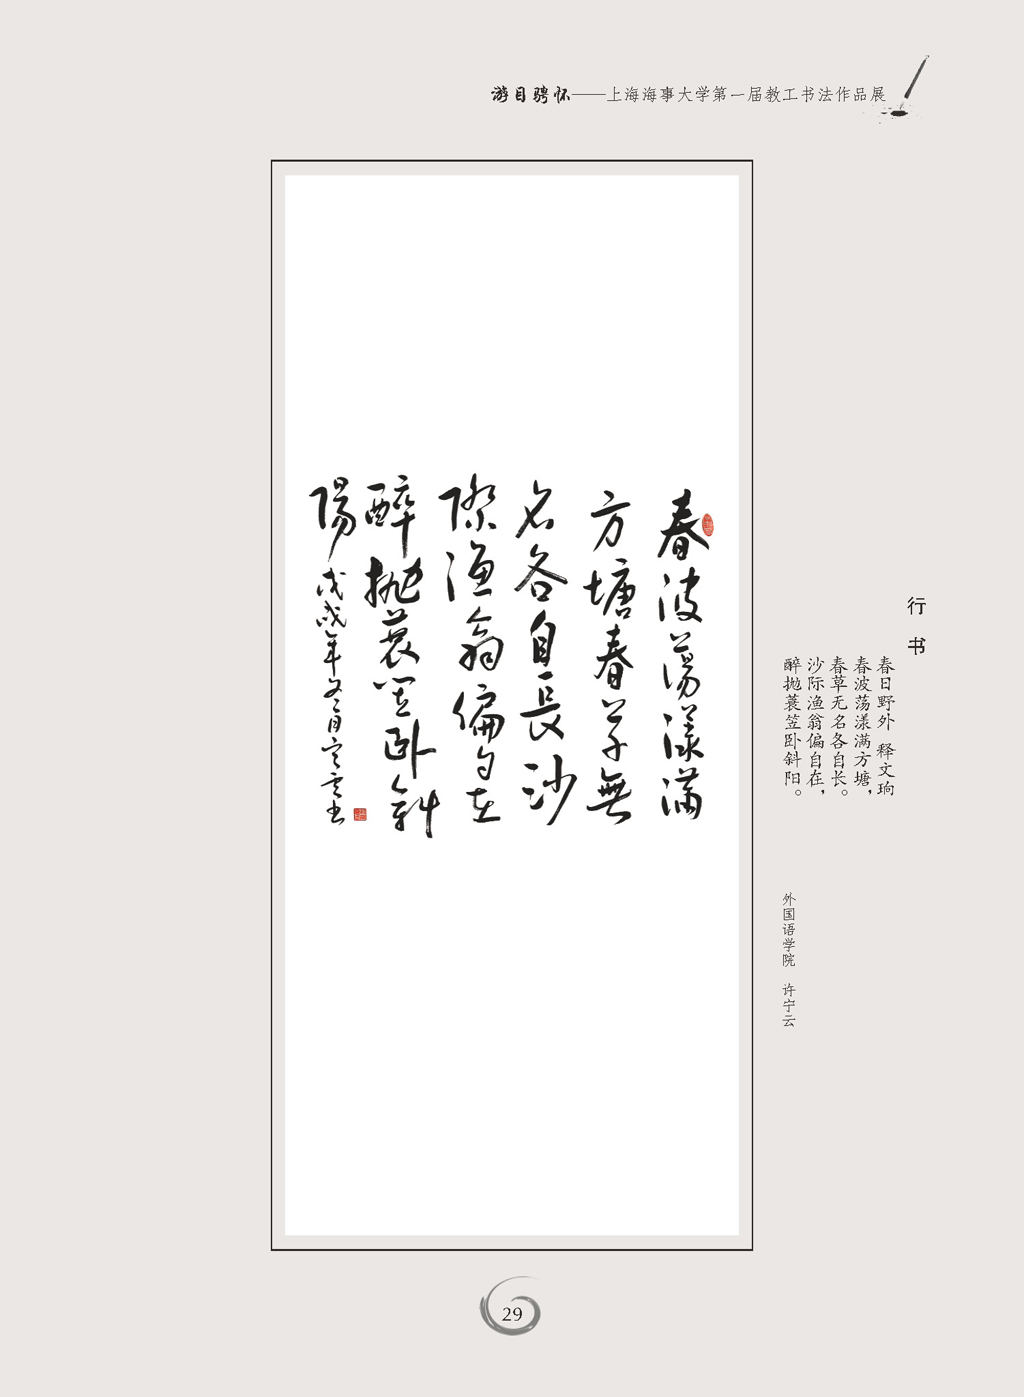 游目骋怀——上海海事大学第一届教工书法作品展
春波蕩漾滿
方塘春草無
名各自長沙
際漁翁偏自在
醉抛蓑笠卧斜
陽戊戌年冬月宁云书
行书
春日野外 释文珦
春波荡漾满方塘，
春草无名各自长。
沙际渔翁偏自在，
醉抛蓑笠卧斜阳。
外国语学院 许宁云
29